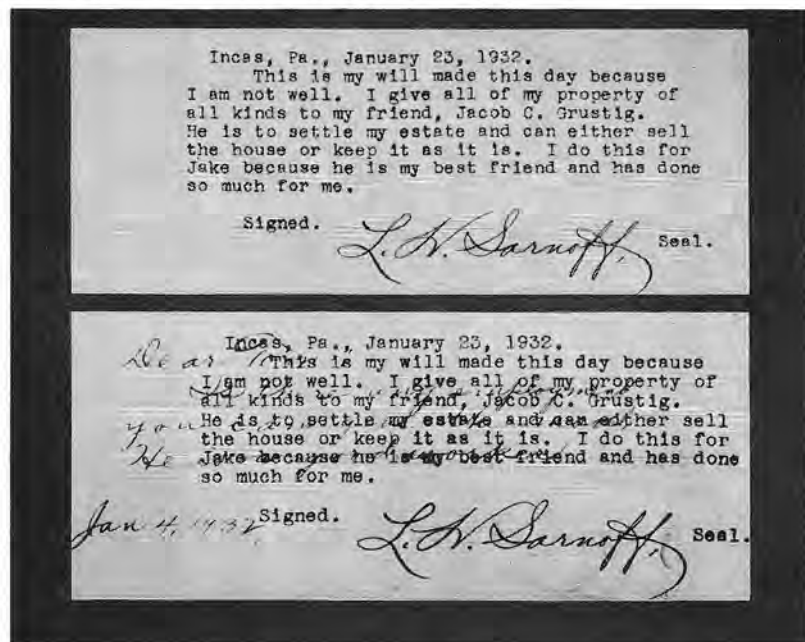 Incas, Pa., January 23, 1932.
This is my will made this day because
I am not well. I give all of my property of
all kinds to my friend, Jacob C. Grustig.
He is to settle my estate and can either sell
the house or keep it as it is. I do this for
Jake because he is my best friend and has done
so much for me.
Signed.
L. W. Sarnoff. Seal.
Incas, Pa., January 23, 1932.
Dear
This is my will made this day because
I am not well. I give all of my property of
all kinds to my friend, Jacob C. Grustig.
you
He is to settle my estate and can either sell
the house or keep it as it is. I do this for
He
Jake because he is my best friend and has done
so much for me.
Jan 4, 1932 Signed.
L. W. Sarnoff. Seal.